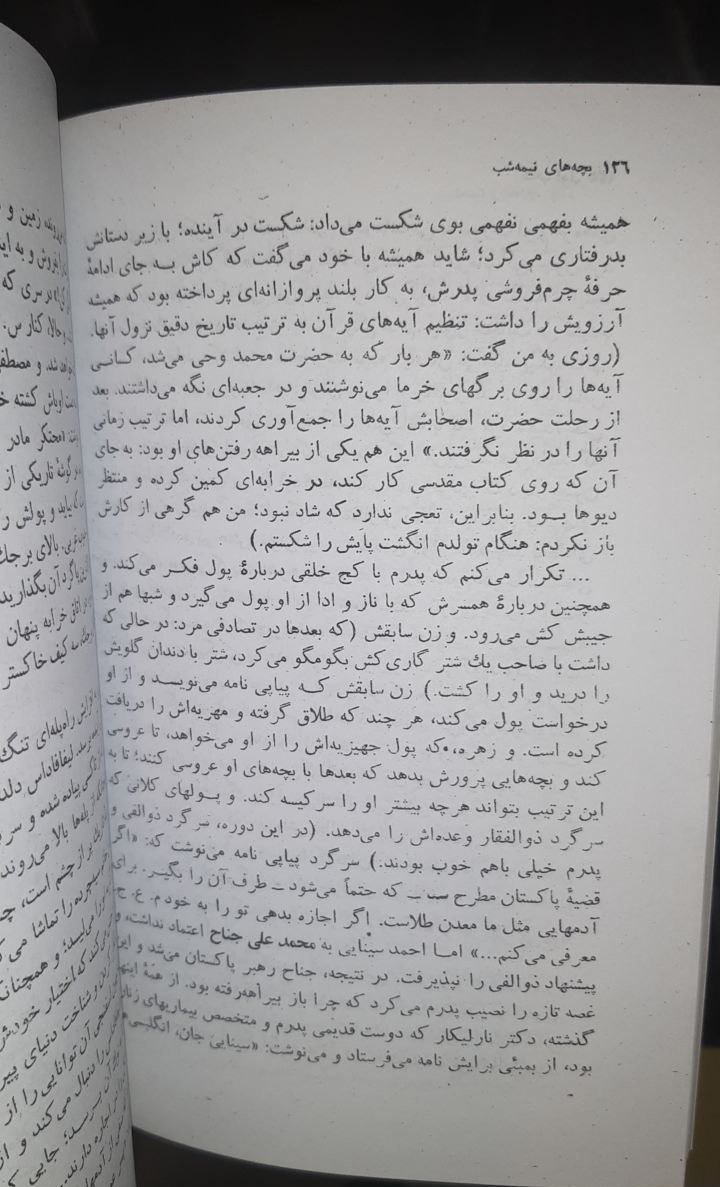 ۱۳٦ بچه‌های نیمه‌شب
همیشه بفهمی نفهمی بوی شکست می‌داد: شکست در آینده؛ با زیر دستانش
بدرفتاری می‌کرد؛ شاید همیشه با خود می‌گفت که کاش بـه جای ادامهٔ
حرفهٔ چرم‌فروشی پدرش، به کار بلند پروازانه‌ای پرداخته بود که همیشه
آرزویش را داشت: تنظیم آیه‌های قرآن به ترتیب تاریخ دقیق نزول آنها.
(روزی به من گفت: «هر بار که به حضرت محمد وحی می‌شد، کسانی
آیه‌ها را روی برگهای خرما می‌نوشتند و در جعبه‌ای نگه می‌داشتند. بعد
از رحلت حضرت، اصحابش آیه‌ها را جمع‌آوری کردند، اما ترتیب زمانی
آنها را در نظر نگرفتند.» این هم یکی از بیراهه رفتن‌های او بود: به‌جای
آن که روی کتاب مقدسی کار کند، در خرابه‌ای کمین کرده و منتظر
دیوها بـود. بنابراین، تعجی ندارد که شاد نبود؛ من هم گرهی از کارش
باز نکردم: هنگام تولدم انگشت پایش را شکستم.)
... تکرار می‌کنم که پدرم با کج خلقی دربارهٔ پول فکر می‌کند. و
همچنین دربارهٔ همسرش که با ناز و ادا از او پول می‌گیرد و شبها هم از
جیبش کش می‌رود. و زن سابقش (که بعدها در تصادفی مرد: در حالی که
داشت با صاحب یك شتر گاری‌کش بگومگو می‌کرد، شتر با دندان گلویش
را درید و او را کشت.) زن سابقش کـه پیاپی نامه می‌نویسد و از او
درخواست پول می‌کند، هر چند که طلاق گرفته و مهریه‌اش را دریافت
کرده است. و زهره، که پول جهیزیه‌اش را از او می‌خواهد، تا عروسی
کند و بچه‌هایی پرورش بدهد که بعدها با بچه‌های او عروسی کنند؛ تا به
این ترتیب بتواند هرچه بیشتر او را سرکیسه کند. و پـولهای کلانی که
سرگرد ذوالفقار وعده‌اش را می‌دهد. (در این دوره، سرگرد ذوالفی و
پدرم خیلی باهم خوب بودند.) سرگرد پیاپی نامه می‌نوشت که: «اگر
قضیهٔ پاکستان مطرح سـ که حتماً می‌شود ـ طرف آن را بگیر. برای
آدمهایی مثل ما معدن طلاست. اگر اجازه بدهی تو را به خودم. ع. ج.
معرفی می‌کنم...» امـا احمد سینایی به محمد علی جناح اعتماد نداشت، و
پیشنهاد ذوالفی را نپذیرفت. در نتیجه، جناح رهبر پاکستان می‌شد و این
غصه تازه را نصیب پدرم می‌کرد که چرا باز بیراهه‌رفته بود. از همهٔ اینها
گذشته، دکتر نارلیکار که دوست قدیمی پدرم و متخصص بیماریهای زنان
بود، از بمبئی برایش نامه می‌فرستاد و می‌نوشت: «سینایی جان، انگلیسی‌